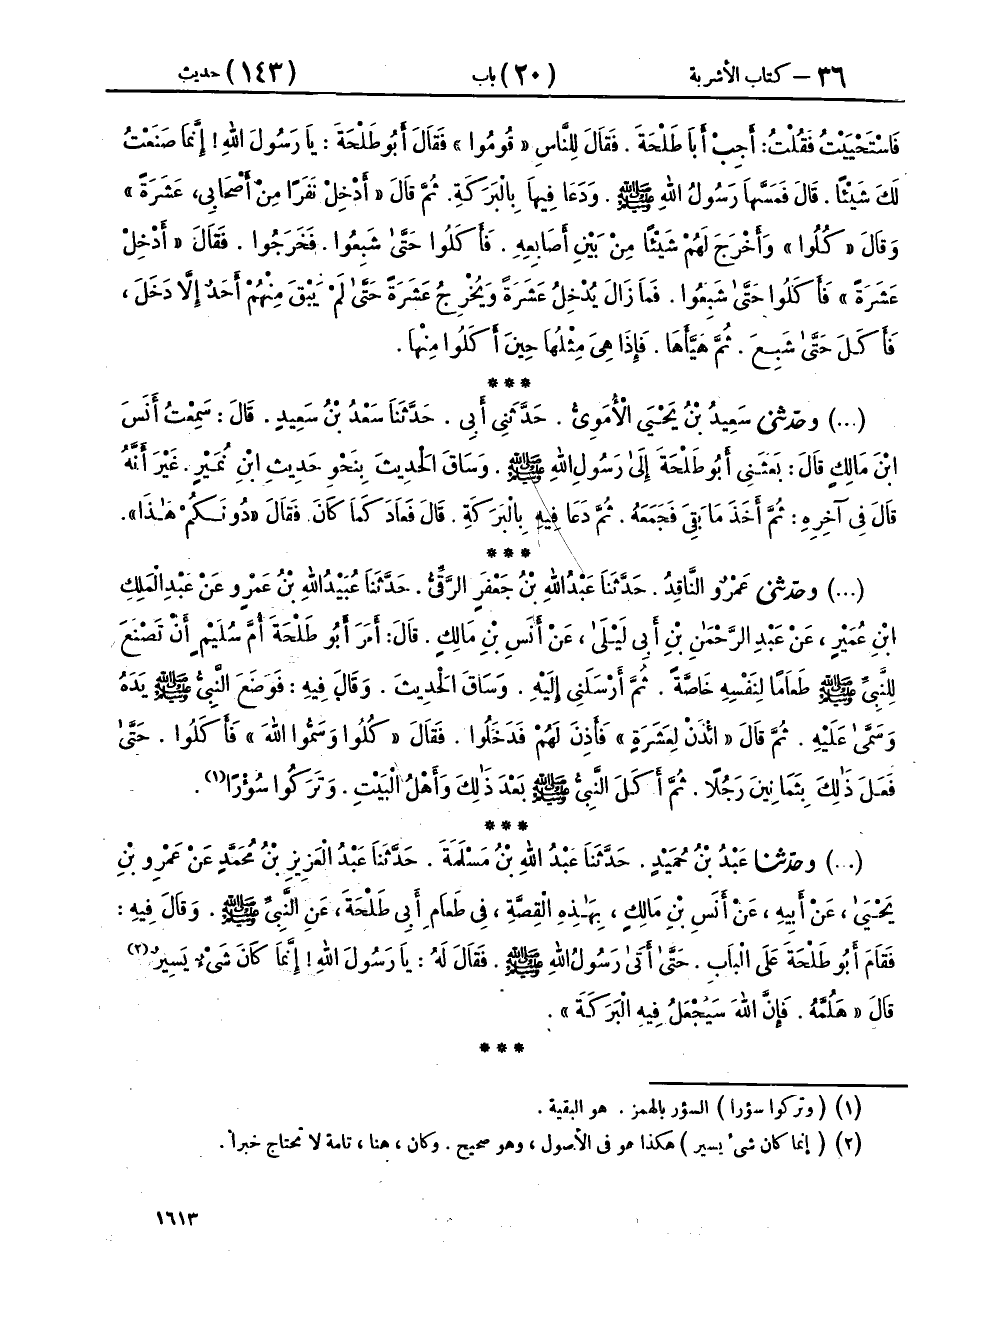 ٣٦ – كتاب الأشربة (٢٠) باب (١٤٣) حديث
فَاسْتَحْيَيْتُ فَقُلْتُ: أَجِبْ أَبَا طَلْحَةَ . فَقَالَ لِلنَّاسِ « قُومُوا » فَقَالَ أَبُو طَلْحَةَ : يَا رَسُولَ اللهِ ! إِنَّمَا صَنَعْتُ
لَكَ شَيْئًا . قَالَ فَمَسَّهَا رَسُولُ اللهِ ﷺ . وَدَعَا فِيهَا بِالْبَرَكَةِ. ثُمَّ قَالَ « أَدْخِلْ نَفَرًا مِنْ أَصْحَابِي، عَشَرَةً »
وَقَالَ « كُلُوا » وَأَخْرَجَ لَهُمْ شَيْئًا مِنْ بَيْنِ أَصَابِعِهِ . فَأَكَلُوا حَتَّىٰ شَبِعُوا . فَخَرَجُوا . فَقَالَ « أَدْخِلْ
عَشَرَةً » فَأَكَلُوا حَتَّىٰ شَبِعُوا . فَمَا زَالَ يُدْخِلُ عَشَرَةً وَيُخْرِجُ عَشَرَةً حَتَّىٰ لَمْ يَبْقَ مِنْهُمْ أَحَدٌ إِلَّا دَخَلَ ،
فَأَكَلَ حَتَّىٰ شَبِعَ . ثُمَّ هَيَّأَهَا . فَإِذَا هِىَ مِثْلُهَا حِينَ أَكَلُوا مِنْهَا .
***
(...) وحدّثنى سَعِيدُ بْنُ يَحْيَى الْأُمَوِىُّ . حَدَّثَنِى أَبِى . حَدَّثَنَا سَعْدُ بْنُ سَعِيدٍ . قَالَ : سَمِعْتُ أَنَسَ
ابْنَ مَالِكٍ قَالَ : بَعَثَنِى أَبُو طَلْحَةَ إِلَىٰ رَسُولِ اللهِ ﷺ . وَسَاقَ الْحَدِيثَ بِنَحْوِ حَدِيثِ ابْنِ نُمَيْرٍ . غَيْرَ أَنَّهُ
قَالَ فِى آخِرِهِ : ثُمَّ أَخَذَ مَا بَقِىَ فَجَمَعَهُ . ثُمَّ دَعَا فِيهِ بِالْبَرَكَةِ . قَالَ فَعَادَ كَمَا كَانَ. فَقَالَ «دُونَكُمْ هَـٰذَا».
***
(...) وحدّثنى عَمْرٌو النَّاقِدُ . حَدَّثَنَا عَبْدُ اللهِ بْنُ جَعْفَرٍ الرَّقِّىُّ . حَدَّثَنَا عُبَيْدُ اللهِ بْنُ عَمْرٍو عَنْ عَبْدِ الْمَلِكِ
ابْنِ عُمَيْرٍ ، عَنْ عَبْدِ الرَّحْمَـٰنِ بْنِ أَبِى لَيْلَىٰ ، عَنْ أَنَسِ بْنِ مَالِكٍ . قَالَ: أَمَرَ أَبُو طَلْحَةَ أُمَّ سُلَيْمٍ أَنْ تَصْنَعَ
لِلنَّبِىِّ ﷺ طَعَامًا لِنَفْسِهِ خَاصَّةً . ثُمَّ أَرْسَلَنِى إِلَيْهِ . وَسَاقَ الْحَدِيثَ . وَقَالَ فِيهِ : فَوَضَعَ النَّبِىُّ ﷺ يَدَهُ
وَسَمَّىٰ عَلَيْهِ . ثُمَّ قَالَ « ائْذَنْ لِعَشَرَةٍ » فَأَذِنَ لَهُمْ فَدَخَلُوا . فَقَالَ « كُلُوا وَسَمُّوا اللهَ » فَأَكَلُوا . حَتَّىٰ
فَعَلَ ذَٰلِكَ بِثَمَانِينَ رَجُلًا . ثُمَّ أَكَلَ النَّبِىُّ ﷺ بَعْدَ ذَٰلِكَ وَأَهْلُ الْبَيْتِ . وَتَرَكُوا سُؤْرًا(١) .
***
(...) وحدّثنا عَبْدُ بْنُ حُمَيْدٍ . حَدَّثَنَا عَبْدُ اللهِ بْنُ مَسْلَمَةَ . حَدَّثَنَا عَبْدُ الْعَزِيزِ بْنُ مُحَمَّدٍ عَنْ عَمْرِو بْنِ
يَحْيَىٰ ، عَنْ أَبِيهِ ، عَنْ أَنَسِ بْنِ مَالِكٍ ، بِهَـٰذِهِ الْقِصَّةِ ، فِى طَعَامِ أَبِى طَلْحَةَ ، عَنِ النَّبِىِّ ﷺ . وَقَالَ فِيهِ :
فَقَامَ أَبُو طَلْحَةَ عَلَى الْبَابِ . حَتَّىٰ أَتَىٰ رَسُولُ اللهِ ﷺ . فَقَالَ لَهُ : يَا رَسُولَ اللهِ ! إِنَّمَا كَانَ شَىْءٌ يَسِيرٌ(٢)
قَالَ « هَلُمَّهُ . فَإِنَّ اللهَ سَيَجْعَلُ فِيهِ الْبَرَكَةَ » .
***
(١) ( وتركوا سؤرا ) السؤر بالهمز . هو البقية .
(٢) ( إنما كان شىء يسير ) هكذا هو فى الأصول ، وهو صحيح . وكان ، هنا ، تامة لا تحتاج خبراً .
١٦١٣